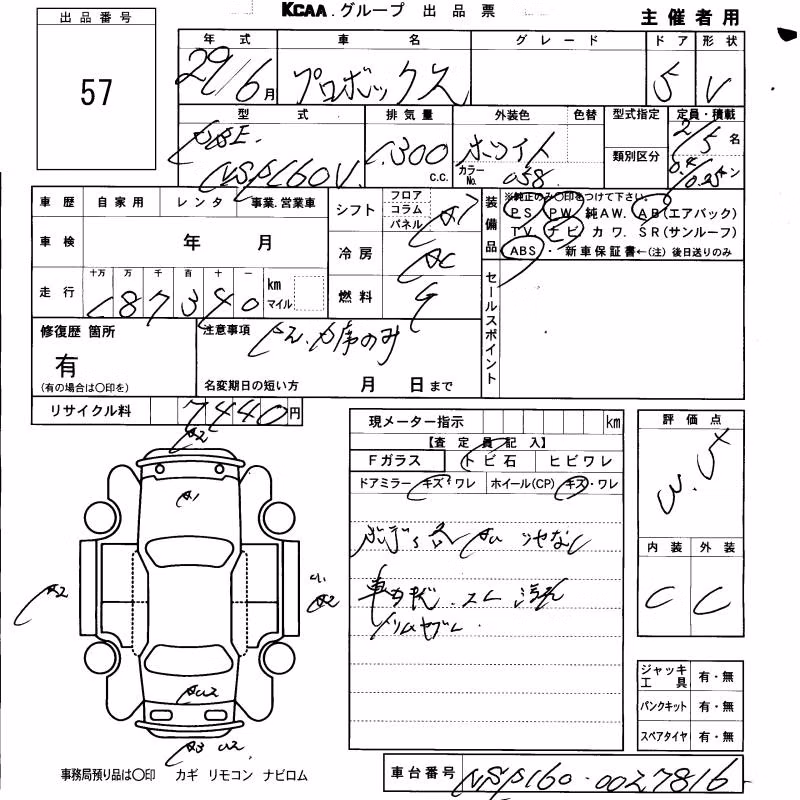 KCAA.グループ 出品票
主催者用
出品番号
57
年式 車名 グレード ドア 形状
29/6月 プロボックス 5 V
型式 排気量 外装色 色替 型式指定 定員・積載
DBE. 1,300 c.c. ホワイト 類別区分 2/5名
NSP160V. カラーNo. 058
車歴 自家用 レンタ 事業.営業車
シフト フロア コラム パネル AT
装備品 ※純正のみ〇印をつけて下さい。
PS PW 純AW. AB(エアバック)
TV. ナビ カワ. SR(サンルーフ)
ABS・ 新車保証書←(注)後日送りのみ
車検 年 月
冷房 AC
走行 十万 万 千 百 十 一 km マイル
187340
燃料 G
セールスポイント
修復歴 箇所
有
(有の場合は〇印を)
注意事項
名変期日の短い方 月 日まで
リサイクル料 7440円
現メーター指示 km
【査定員記入】
Fガラス トビ石 ヒビワレ
ドアミラー キズ・ワレ ホイール(CP) キズ・ワレ
車内
評価点
内装 外装
C C
A2
A1
A2
A2
ジャッキ工具 有・無
パンクキット 有・無
スペアタイヤ 有・無
事務局預り品は〇印 カギ リモコン ナビロム
車台番号 NSP160-0027816